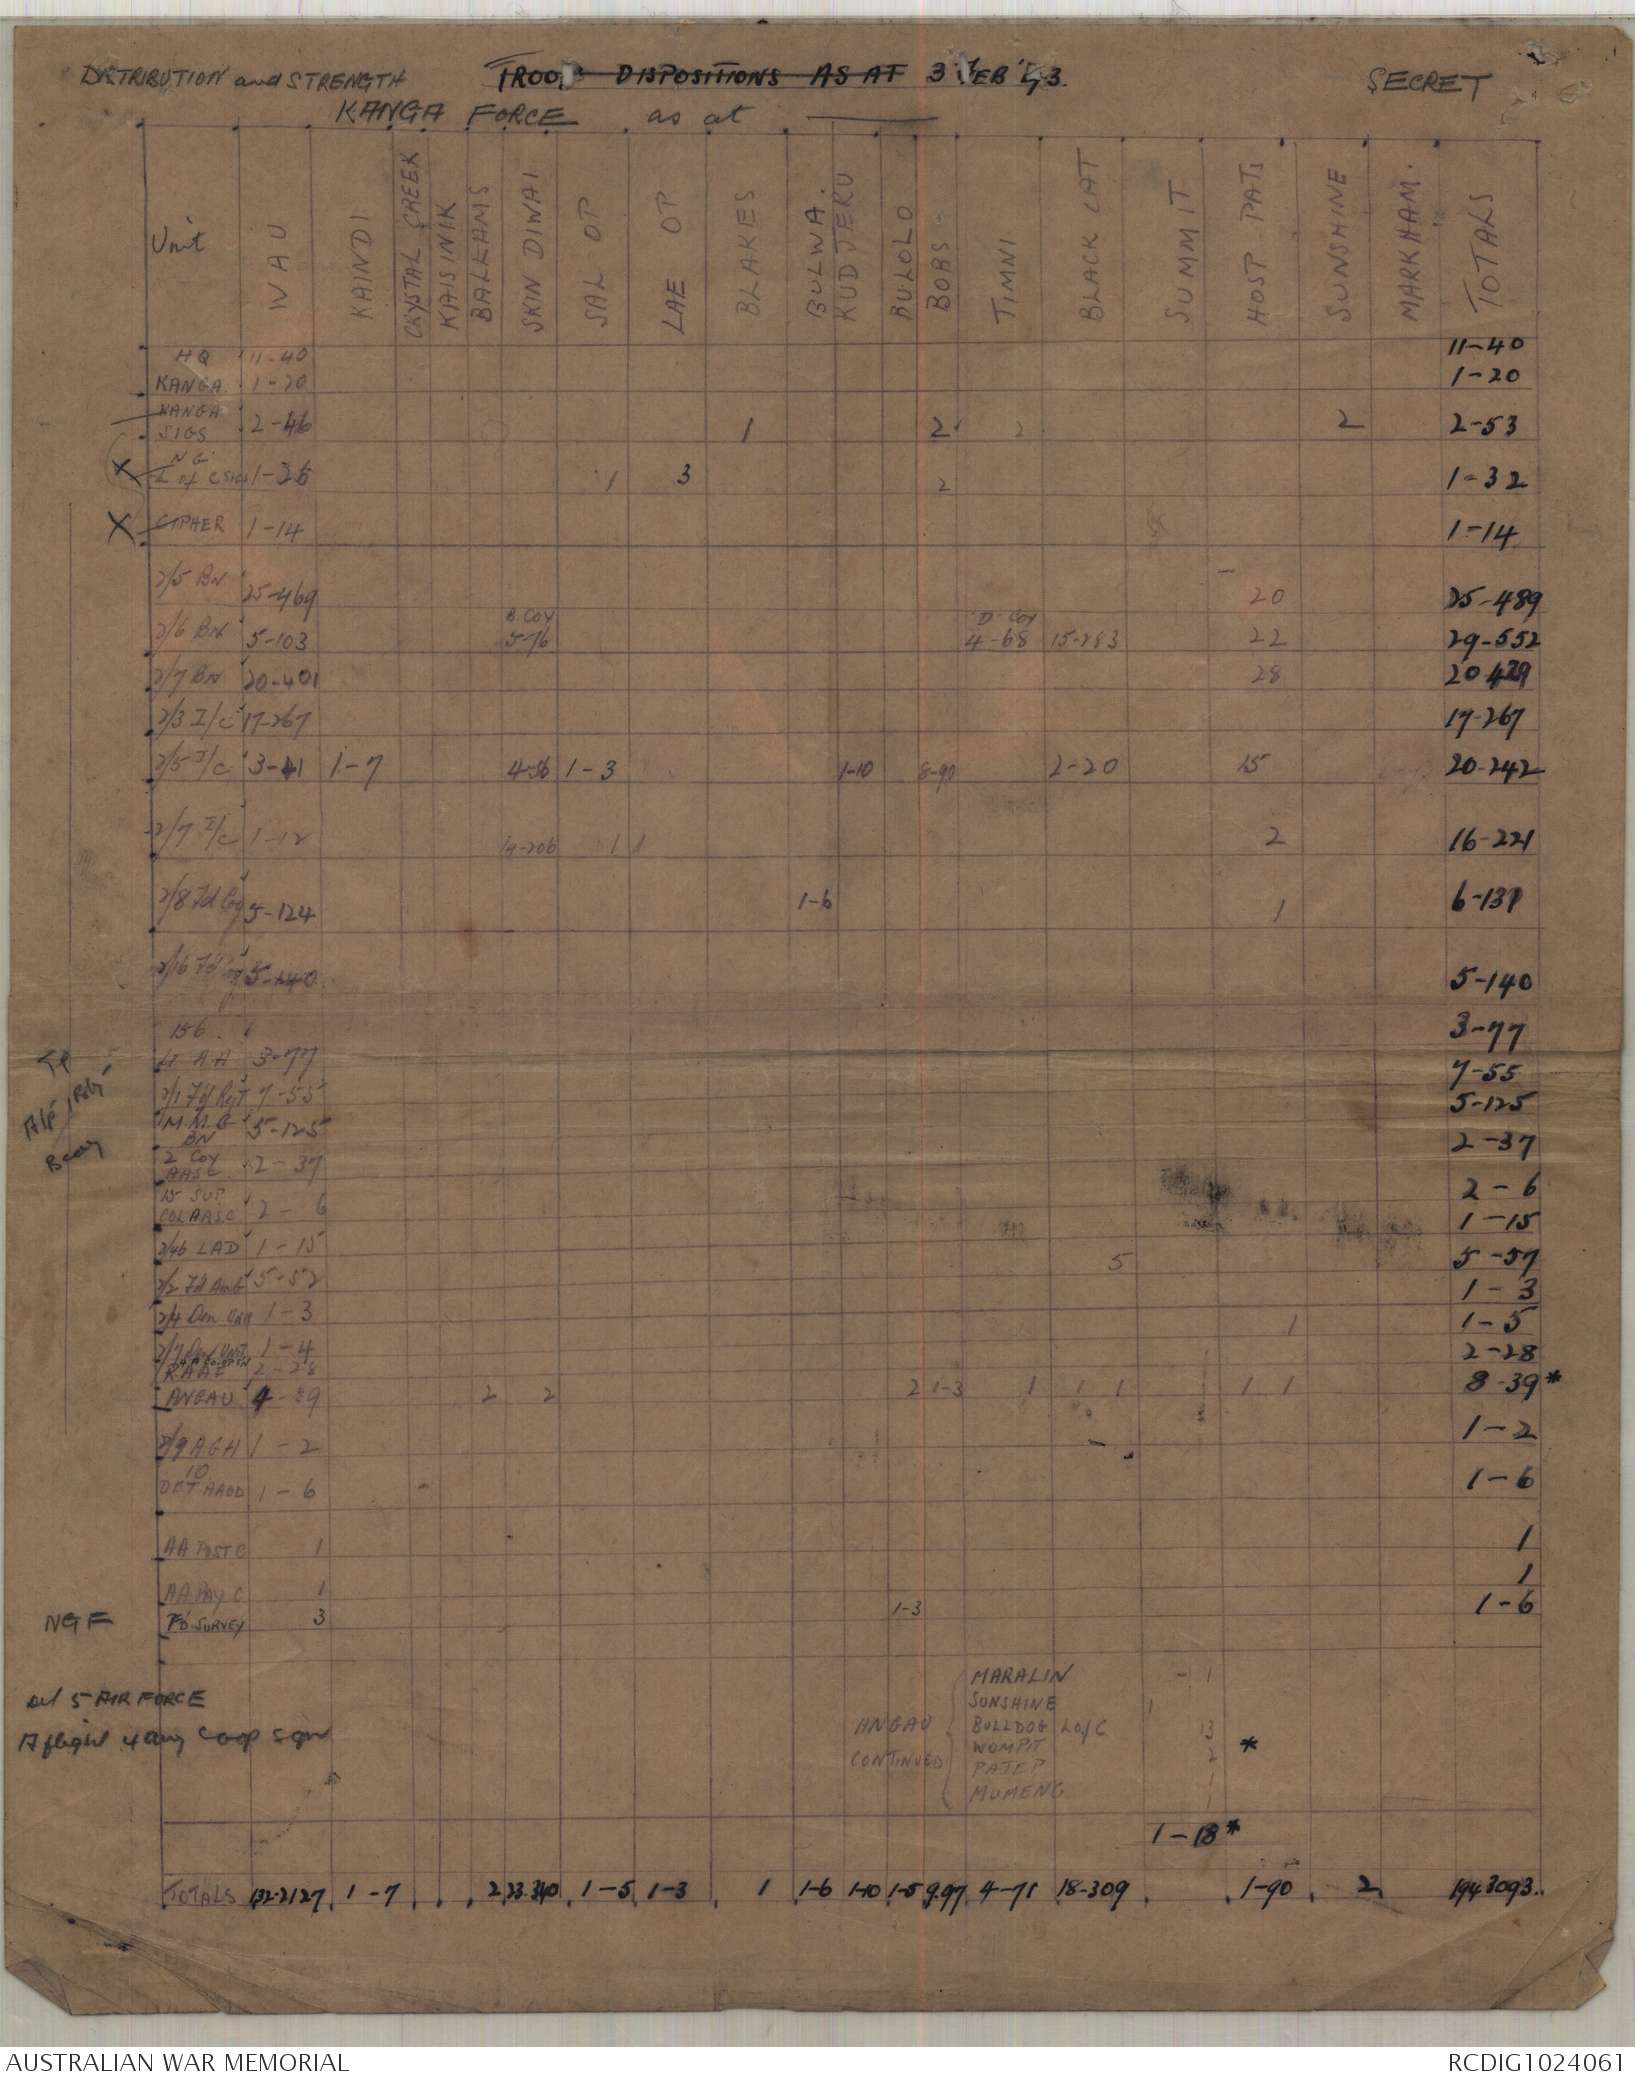 DISTRIBUTION and STRENGTH TROOP DISPOSITIONS AS AT 3 FEB '43. SECRET
KANGA FORCE as at
Unit WAU KAINDI CRYSTAL CREEK KAISINIK BALLAMS SKIN DIWAI SAL OP LAE OP BLAKES BULWA. KUDJERU BULOLO BOBS TIMNI BLACK CAT SUMMIT HOST. PATS SUNSHINE MARKHAM. TOTALS
HQ 11-40 11-40
KANGA 1-20 1-20
KANGA SIGS 2-46 1 2 2 2 2-53
X NG L of C SIGS 1-26 1 3 2 1-32
X CIPHER 1-14 1-14
2/5 BN 25-469 20 25-489
2/6 BN 5-103 B COY 5-76 D. COY 4-68 15-283 22 29-552
2/7 BN 20-401 28 20-429
2/3 I/C 17-267 17-267
2/5 I/C 3-41 1-7 4-56 1-3 1-10 8-90 2-20 15 20-242
2/7 I/C 1-12 14-206 1 1 2 16-221
2/8 Fd Coy 5-124 1-6 1 6-131
2/16 Fd 5-140 5-140
156 Lt AA 3-77 3-77
2/1 Fd Regt 7-55 7-55
M.M.G BN 5-125 5-125
2 COY AASC 2-37 2-37
15 SUP. COL AASC 2-6 2-6
2/46 LAD 1-15 1-15
2/2 Fd Amb 5-52 5 5-57
2/4 Den Unit 1-3 1-3
2/7 Den Unit 1-4 1 1-5
RAAF 2-28 2-28
ANGAU 4- 2 2 2 1-3 1 1 1 1 1 8-39*
2/9 AGH 1-2 1-2
10 DET AAOD 1-6 1-6
AA POST C 1 1
AA PAY C 1 1
NGF Fd SURVEY 3 1-3 1-6
Det 5 AIR FORCE
A flight 4 army coop sqn
ANGAU CONTINUED
MARALIN - 1
SUNSHINE 1
BULLDOG L of C 13
WOMPIT 2 *
PATEP
MUMENG 1
1-18*
TOTALS 132-2127 1-7 2 23-340 1-5 1-3 1 1-6 1-10 1-5 9-97 4-71 18-309 1-90 2 194-3093.
AUSTRALIAN WAR MEMORIAL RCDIG1024061